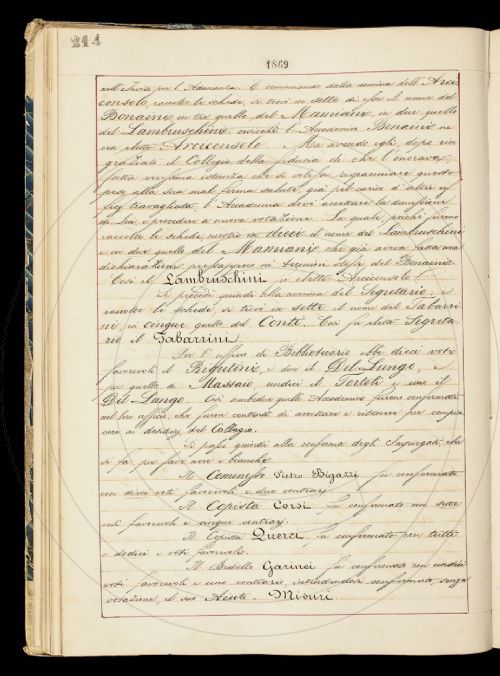 214
1869
nell'Invito per l'Adunanza. E cominciando dalla nomina dell'Arci
consolo, raccolte le schede, si trovò in sette di esse il nome del
Bonaini in tre quello del Mannani, in due quello
del Lambruschini cosicchè l'Accademico Bonaini ne
era eletto Arciconsolo. Ma avendo egli, dopo rin
graziato il Collegio della fiducia di che l'onorava,
fatta vivissima istanza che si volesse risparmiare questo
peso alla sua mal ferma salute, già più carica d'altri
travagliata, l'Accademia dovè accettare la dimissione
di Lui e procedere a nuova votazione. La quale, poichè furono
raccolte le schede, mostrò in dieci il nome del Lambruschini
e in due quello del Mannani che già aveva fatta una
dichiarazione presso a' termini stessi del Bonaini.
Così il Lambruschini fu eletto Arciconsolo.
Si procedè quindi alla nomina del Segretario, e
raccolte le schede, si trovò in sette il nome del Tabarri
ni, in cinque quello del Conti. Così fu eletto Segreta-
rio il Tabarrini.
Per l'ufficio di Bibliotecario ebbe dieci voti
favorevoli il Rigutini, e due il Del-Lungo, e
per quello di Massaio, undici il Tortoli e uno il
Del-Lungo. Così ambedue quelli Accademici furono confermati
nel loro ufficio, che furon contenti di accettare e ritenere per compia
cere ai desiderj del Collegio.
Si passò quindi alla conferma degli Impiegati, che
si fa per fave nere e bianche.
Il Commesso Pietro Bigazzi fu confermato
con dieci voti favorevoli e due contrarj.
Il Copista Corsi fu confermato con sette
voti favorevoli e cinque contrarj.
Il Copista Querci fu confermato con tutti
e dodici i voti favorevoli.
Il Bidello Garinei fu confermato con undici
voti favorevoli e uno contrario, intendendosi confermato, senza
votazione, il suo Aiuto Misuri.